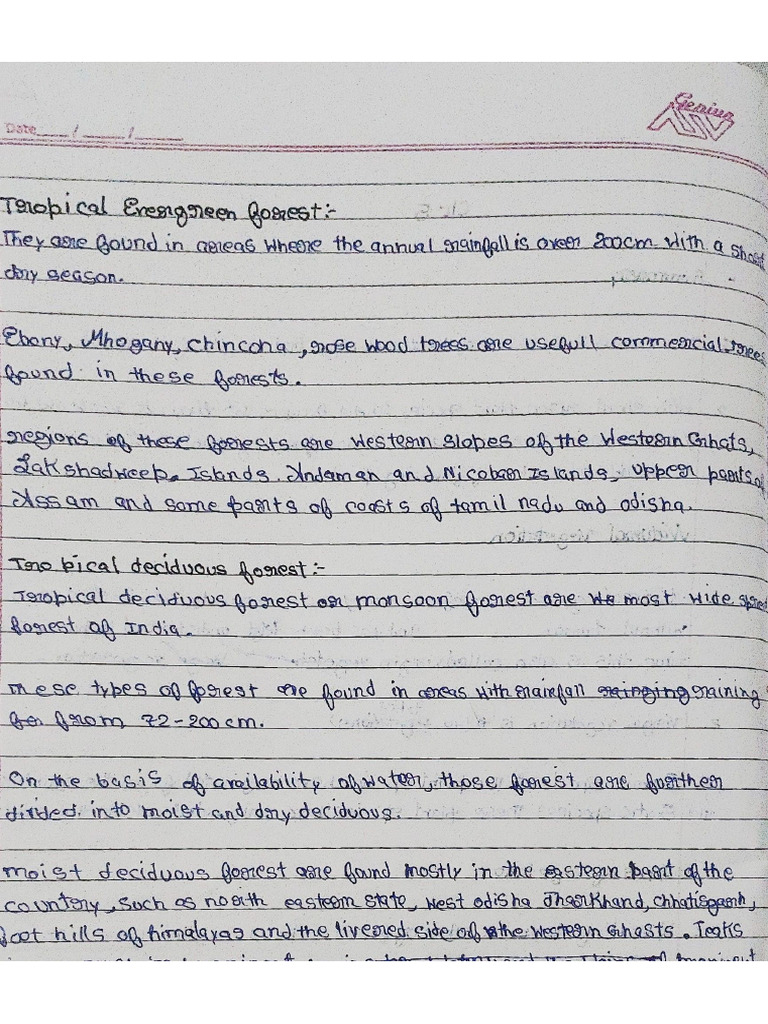 Genius
Date / /
Tropical Evergreen forest:-
They are found in areas where the annual rainfall is over 200cm with a short
dry season.
Ebony, Mhogany, chincona, rose wood trees are usefull commercial trees
found in these forests.
regions of these forests are western slopes of the Western Ghats,
Lakshadweep. Islands. Andaman and Nicobar Islands, upper parts of
Assam and some parts of coasts of tamil nadu and odisha.
Tropical deciduous forest:-
Tropical deciduous forest or monsoon forest are the most wide spred
forest of India.
These types of forest are found in areas with rainfall raining
from 72-200cm.
On the basis of availability of water, those forest are further
divided into moist and dry deciduous.
moist deciduous forest are found mostly in the eastern part of the
country, such as north eastern state, west odisha Jharkhand, chhatisgarh,
foot hills of himalayas and the livered side of the western Ghasts. Teaks